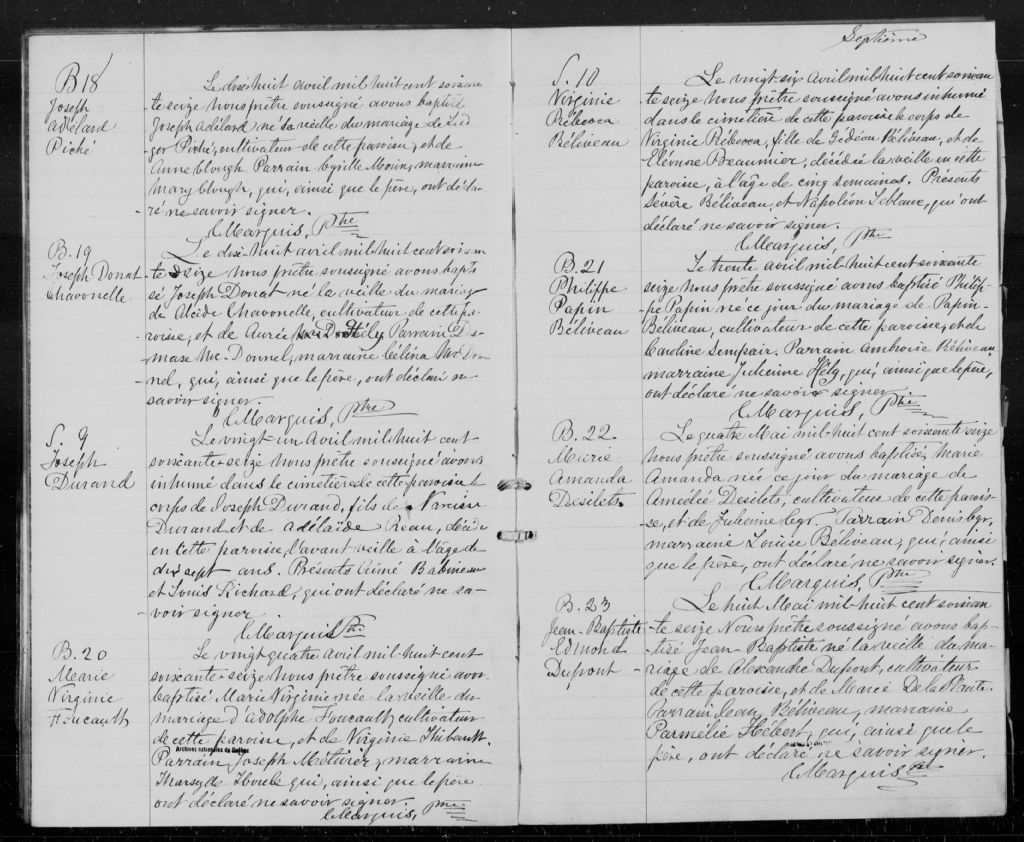 B 18
Joseph
Adélard
Piché
Le dix huit avril mil huit cent soixan
te seize nous prêtre soussigné avons baptisé
Joseph Adélard né la veille du mariage de Lud
ger Piché, cultivateur de cette paroisse, et de
Anne Clough. Parrain Cyrille Morin, marraine
Mary Clough, qui, ainsi que le père, ont décla-
ré ne savoir signer.
C Marquis, Ptre
B. 19
Joseph Donat
Chavonelle
Le dix-huit avril mil huit cent soixan
te seize nous prêtre soussigné avons bapti
sé Joseph Donat né la veille du mariage
de Alcide Chavonelle, cultivateur de cette pa-
roisse, et de Aurée Parrain Da-
mase Mc-Donnel, marraine Célina McDon-
nel, qui, ainsi que le père, ont déclaré ne
savoir signer.
C Marquis, Ptre
S. 9
Joseph
Durand
Le vingt-un Avril mil huit cent
soixante-seize nous prêtre soussigné avons
inhumé dans le cimetière de cette paroisse le
corps de Joseph Durand, fils de Narcisse
Durand et de Adélaïde Reau, décédé
en cette paroisse l'avant veille à l'âge de
dix sept ans. Présents Aimé Babineau
et Louis Richard, qui ont déclaré ne sa-
voir signer
C Marquis Ptre
B. 20
Marie
Virginie
Foucault
Le vingt quatre avril mil huit cent
soixante-seize nous prêtre soussigné avons
baptisé Marie Virginie née la veille du
mariage d'Adolphe Foucault cultivateur
de cette paroisse, et de Virginie Thibeault.
Archives nationales du Québec
Parrain Joseph Metivier, marraine
Houle qui, ainsi que le père
ont déclaré ne savoir signer.
C Marquis, Ptre
Septième
S. 10
Virginie
Rébecca
Béliveau
Le vingt six Avril mil huit cent soixan
te seize nous prêtre soussigné avons inhumé
dans le cimetière de cette paroisse le corps de
Virginie Rébecca, fille de Gédéon Béliveau, et de
Eléonse Beaumier, décédée la veille en cette
paroisse, à l'âge de cinq semaines. Présents
Sévère Béliveau, et Napoléon Leblanc, qui ont
déclaré ne savoir signer.
C Marquis, Ptre
B. 21
Philippe
Papin
Béliveau
Le trente avril mil huit cent soixante
seize nous prêtre soussigné avons baptisé Philip-
pe Papin né ce jour du mariage de Papin-
Béliveau, cultivateur de cette paroisse, et de
Caroline Parrain Ambroise Béliveau,
marraine Julienne Hély, qui, ainsi que le père,
ont déclaré ne savoir signer
C Marquis, Ptre
B. 22
Marie
Amanda
Desilets
Le quatre Mai mil huit cent soixante seize
nous prêtre soussigné avons baptisé, Marie
Amanda née ce jour du mariage de
Amédée Desilets, cultivateur de cette parois-
se, et de Julienne Cyr. Parrain Denis Cyr,
marraine Louise Béliveau, qui, ainsi
que le père, ont déclaré ne savoir signer.
C Marquis, Ptre
B. 23
Jean-Baptiste
Edmond
Dupont
Le huit Mai mil huit cent soixan
te seize Nous prêtre soussigné avons bap-
tisé Jean-Baptiste né la veille du ma-
riage de Alexandre Dupont, cultivateur
de cette paroisse, et de Marie De la Plante.
Parrain Jean Béliveau, marraine
Parmelie Hébert, qui, ainsi que le
père, ont déclaré ne savoir signer.
C Marquis Ptre